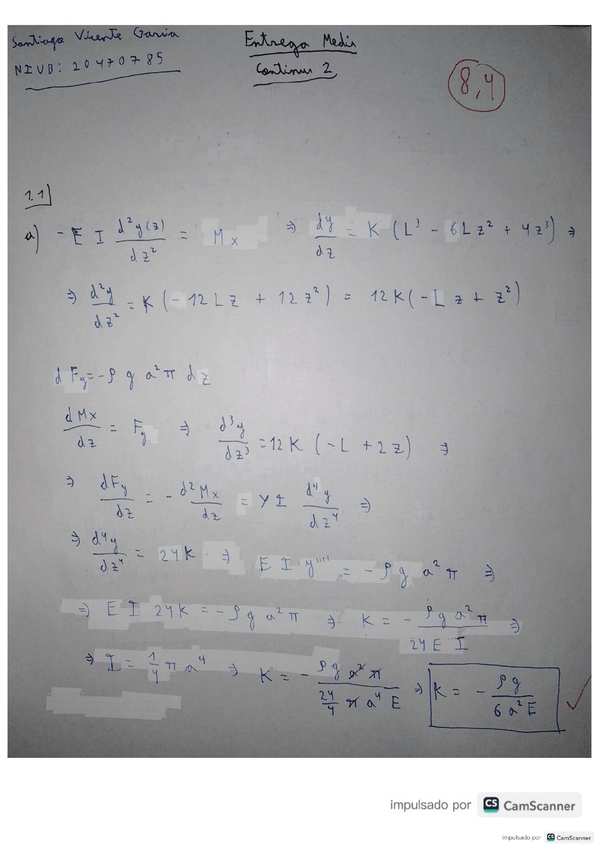 Santiago Vicente Garcia
NIUB: 20470785
Entrega Medis
Continus 2
8,4
1.1]
a) - E I d²y(z)/dz² = Mx ⇒ dy/dz = K (L³ - 6Lz² + 4z³) ⇒
⇒ d²y/dz² = K (-12Lz + 12z²) = 12K(-Lz + z²)
dFg = -ρ g a² π dz
dMx/dz = Fy ⇒ d³y/dz³ = 12K (-L + 2z) ⇒
⇒ dFy/dz = - d²Mx/dz = Y I d⁴y/dz⁴ ⇒
⇒ d⁴y/dz⁴ = 24K ⇒ E I y'''' = -ρ g a² π ⇒
⇒ E I 24K = -ρ g a² π ⇒ K = - ρ g a² π / 24 E I ⇒
⇒ I = 1/4 π a⁴ ⇒ K = - ρ g a² π / 24/4 π a⁴ E ⇒ K = - ρ g / 6 a² E
impulsado por CS CamScanner
impulsado por CS CamScanner